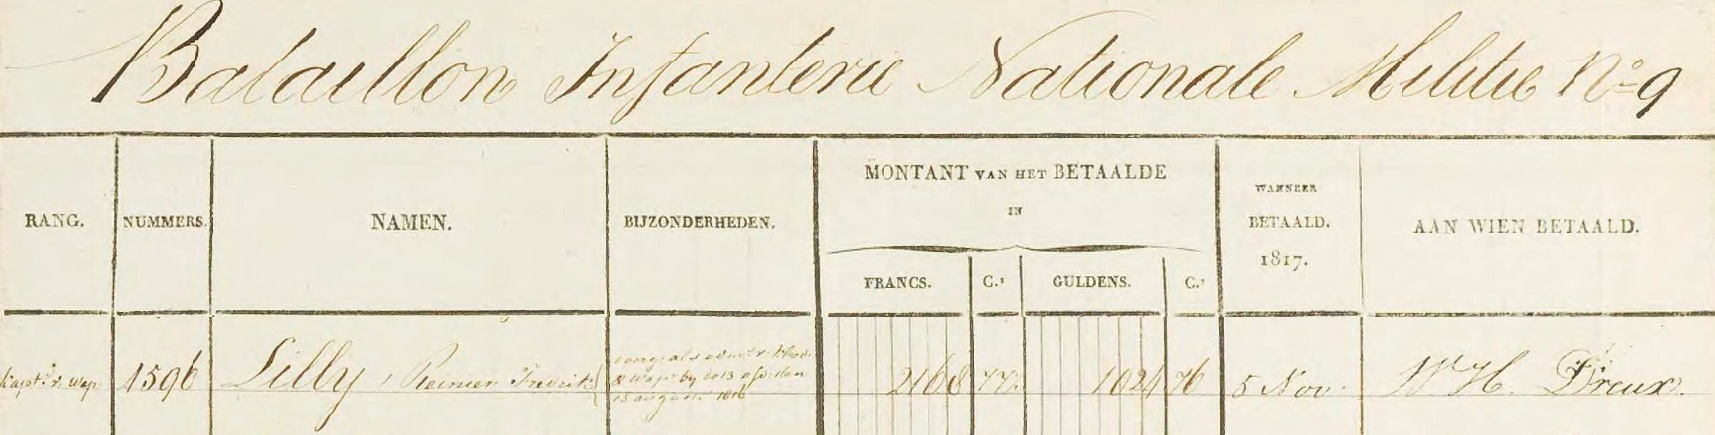 Bataillon Infanterie Nationale Militie No 9
RANG.
NUMMERS.
NAMEN.
BIJZONDERHEDEN.
MONTANT VAN HET BETAALDE
IN
FRANCS.
C.s
GULDENS.
C.s
WANNEER
BETAALD.
1817.
AAN WIEN BETAALD.
Kapt. v. Wap. 1596 Lilly, Reinier Fredrik 2168 77 1024 76 5 Nov. W H. Dreux.
15 august. 1816